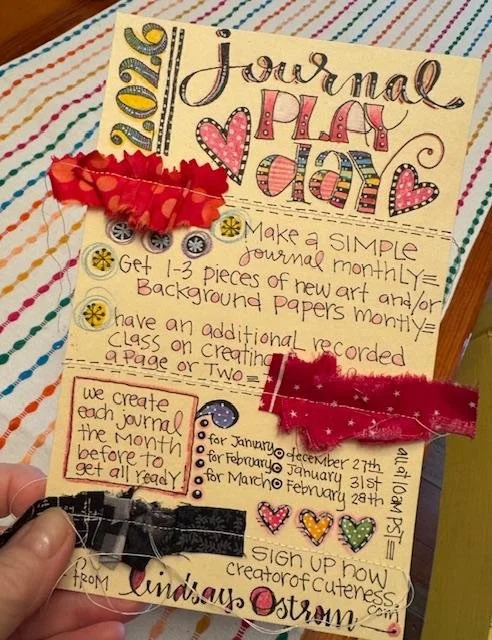 2026
journal
PLAY
day
Make a SIMPLE
journal monthly=
Get 1-3 pieces of new art and/or
Background papers montly=
have an additional recorded
class on creating
a page or Two=
we create
each journal
the month
before to
get all ready
for January december 27th
for February January 31st
for March February 28th
all at 10am PST=
sign up now
creatorofcuteness.
com
-FROM Lindsay Ostrom